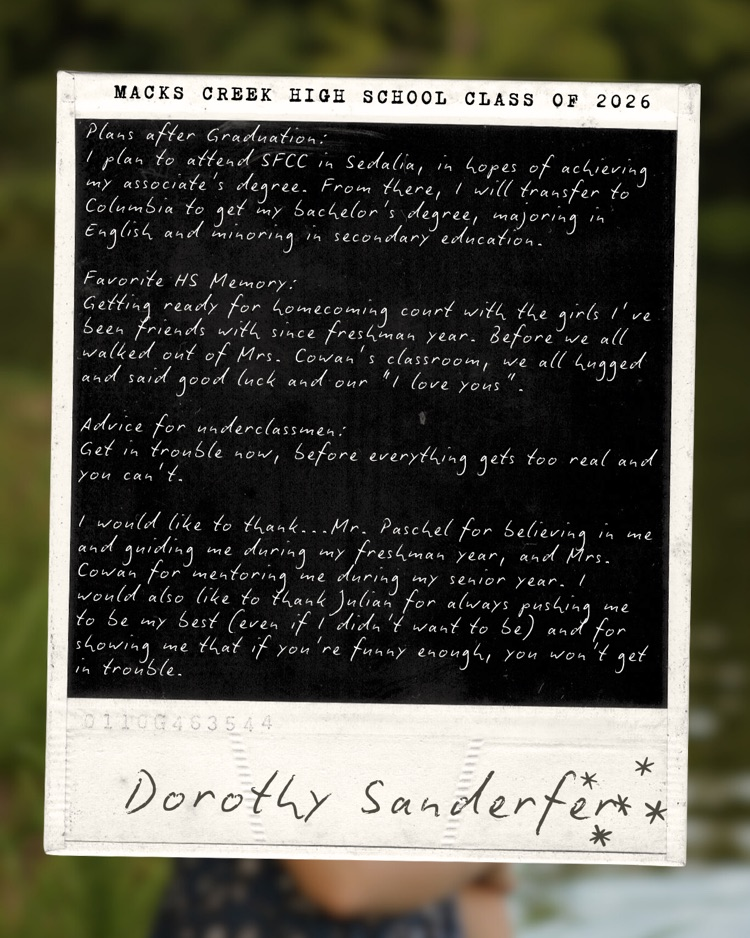 MACKS CREEK HIGH SCHOOL CLASS OF 2026
Plans after Graduation:
I plan to attend SFCC in Sedalia, in hopes of achieving
my associate's degree. From there, I will transfer to
Columbia to get my bachelor's degree, majoring in
English and minoring in secondary education.
Favorite HS Memory:
Getting ready for homecoming court with the girls I've
been friends with since freshman year. Before we all
walked out of Mrs. Cowan's classroom, we all hugged
and said good luck and our "I love yous".
Advice for underclassmen:
Get in trouble now, before everything gets too real and
you can't.
I would like to thank...Mr. Paschel for believing in me
and guiding me during my freshman year, and Mrs.
Cowan for mentoring me during my senior year. I
would also like to thank Julian for always pushing me
to be my best (even if I didn't want to be) and for
showing me that if you're funny enough, you won't get
in trouble.
0110G463544
Dorothy Sanderfer